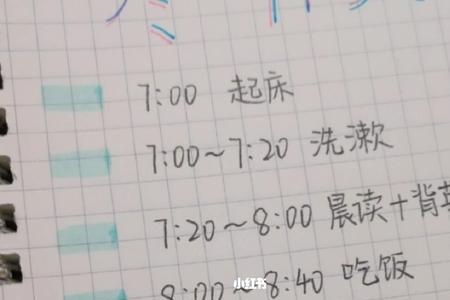 7:00 起床
7:00~7:20 洗漱
7:20~8:00 晨读+背英
8:00~8:40 吃饭
小红书